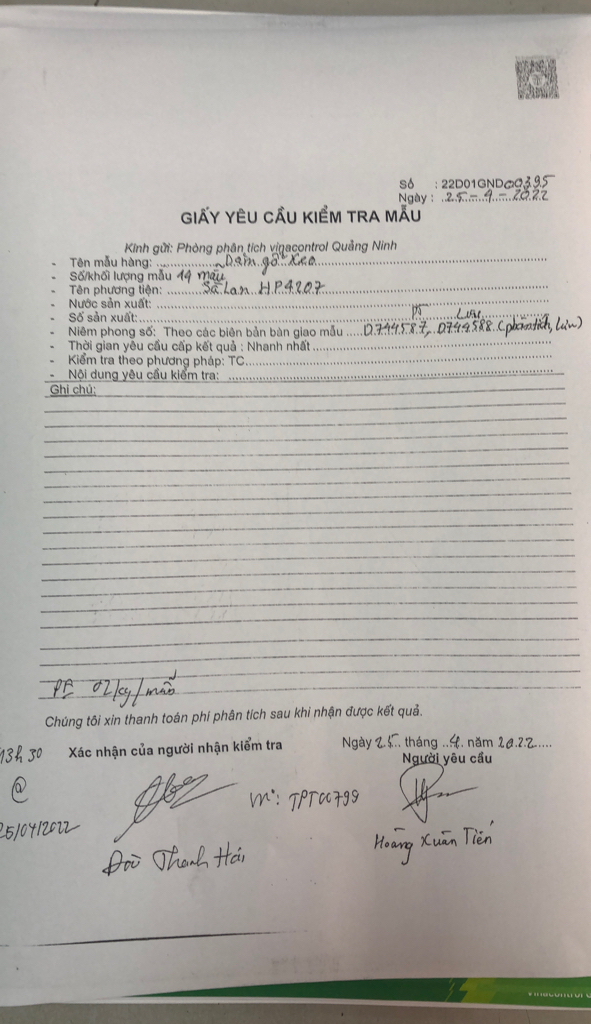 Số : 22D01GND00395
Ngày : 25-4-2022
GIẤY YÊU CẦU KIỂM TRA MẪU
Kính gửi: Phòng phân tích vinacontrol Quảng Ninh
- Tên mẫu hàng: Dăm gỗ keo
- Số/khối lượng mẫu 14 mẫu
- Tên phương tiện: Sà Lan HP4207
- Nước sản xuất:
- Số sản xuất:
PT Lưu
- Niêm phong số: Theo các biên bản bàn giao mẫu D744587, D744588 (phân tích, Lưu)
- Thời gian yêu cầu cấp kết quả : Nhanh nhất
- Kiểm tra theo phương pháp: TC
- Nội dung yêu cầu kiểm tra:
Ghi chú:
02kg/mẫu
Chúng tôi xin thanh toán phí phân tích sau khi nhận được kết quả.
13h30 Xác nhận của người nhận kiểm tra Ngày 25 tháng 4 năm 2022
Người yêu cầu
@
25/04/2022
TPT00799
Hoàng Xuân Tiến
Thanh Hải